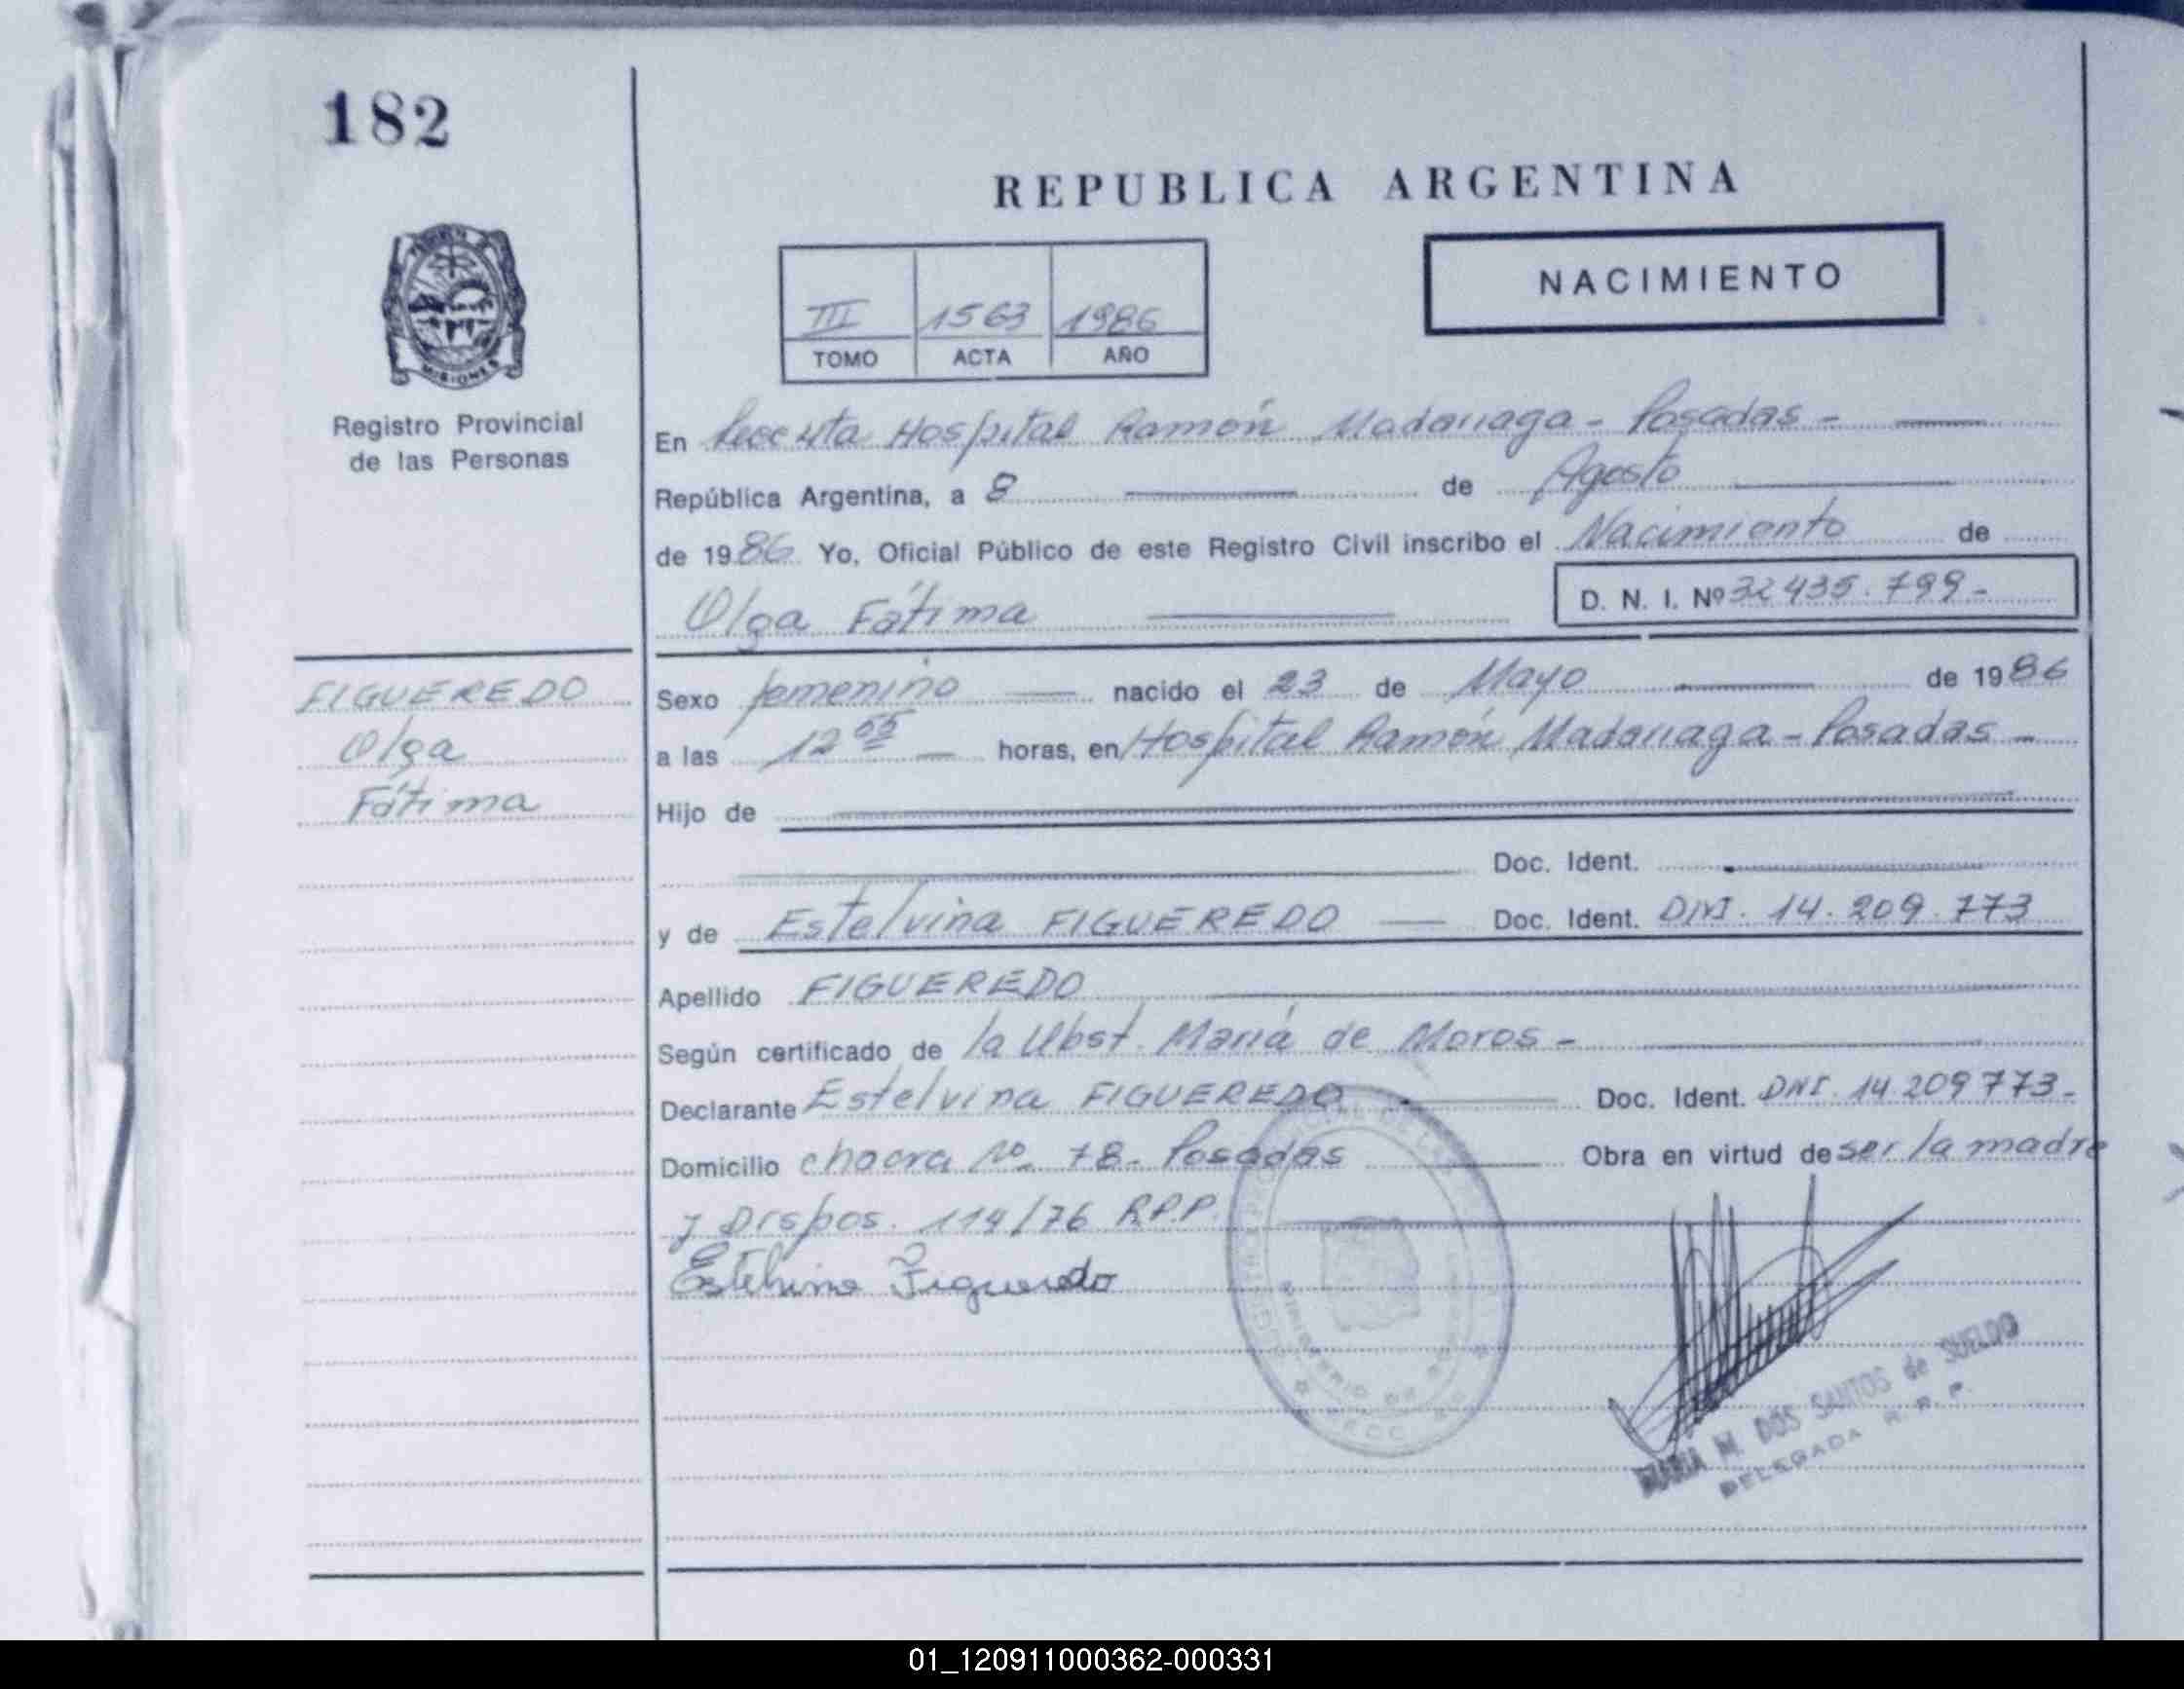 182
REPUBLICA ARGENTINA
NACIMIENTO
III 1563 1986
TOMO ACTA AÑO
MISIONES
Registro Provincial
de las Personas
En Hospital Ramón Madariaga - Posadas -
República Argentina, a 8 de Agosto
de 1986 Yo, Oficial Público de este Registro Civil inscribo el Nacimiento de
Olga Fátima D. N. I. Nº 32435.799-
FIGUEREDO
Olga
Fátima
Sexo femenino nacido el 23 de Mayo de 1986
a las 12 55 horas, en Hospital Ramón Madariaga - Posadas -
Hijo de
Doc. Ident.
y de Estelvina FIGUEREDO Doc. Ident. DNI. 14.209.773
Apellido FIGUEREDO
Según certificado de la Obst. María de Moros -
Declarante Estelvina FIGUEREDO Doc. Ident. DNI 14.209773-
Domicilio chacra Nº 78- Posadas Obra en virtud de ser la madre
y Dispos. 114/76 R.P.P.
Estelvina Figueredo
MARIA M. DOS SANTOS de SUELDO
DELEGADA R. P. P.
01_120911000362-000331